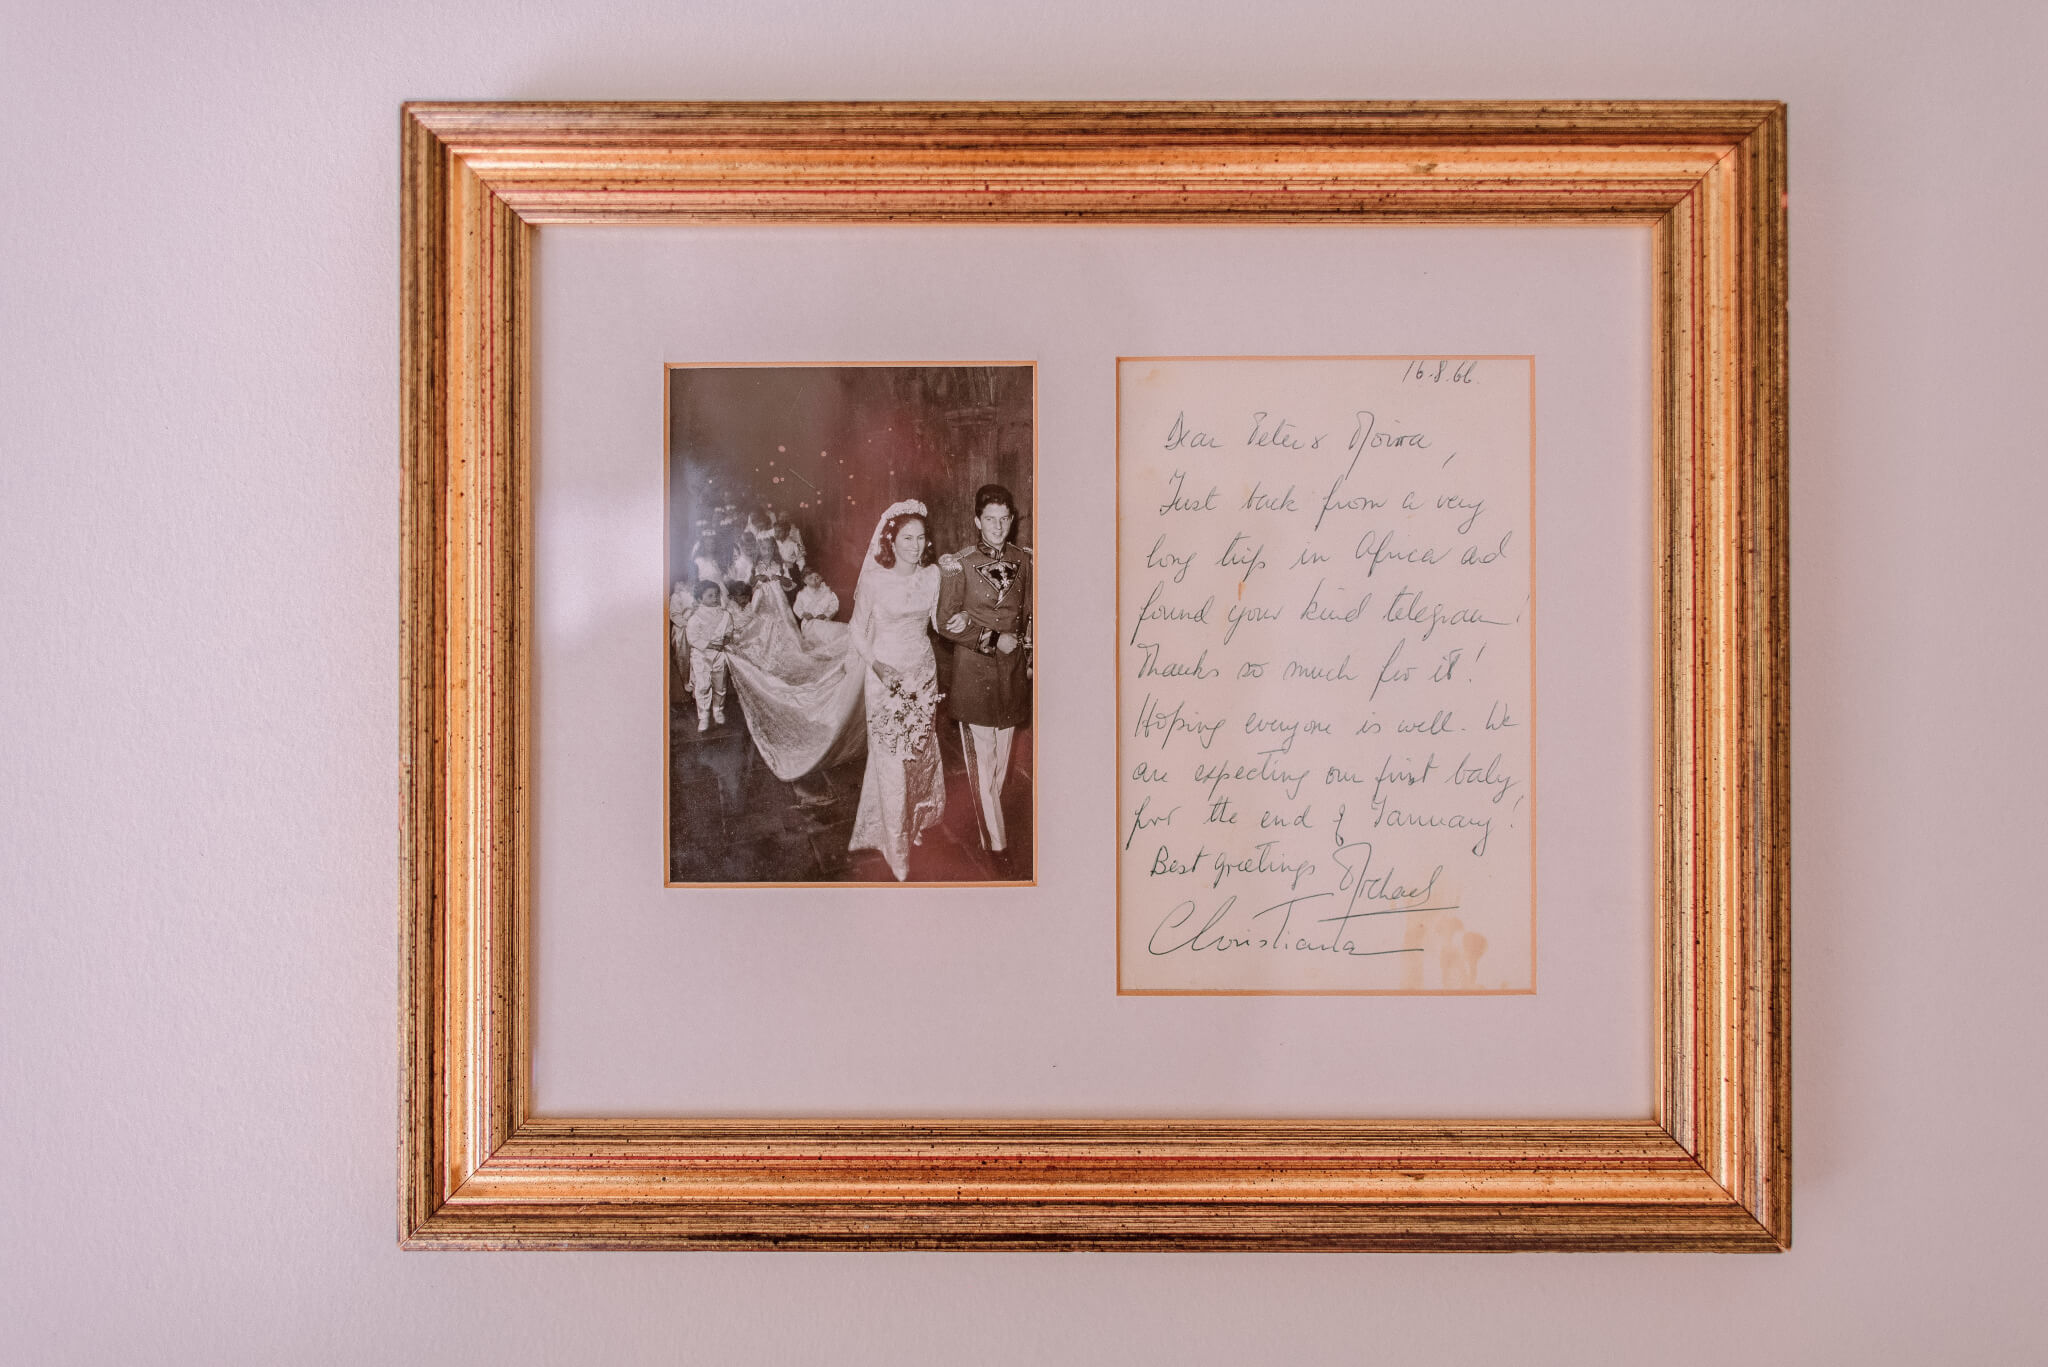 16.8.66.
Dear Peter & Moira,
Just back from a very
long trip in Africa and
found your kind telegram!
Thanks so much for it!
Hoping everyone is well. We
are expecting our first baby
for the end of January!
Best greetings Michael
Christiana